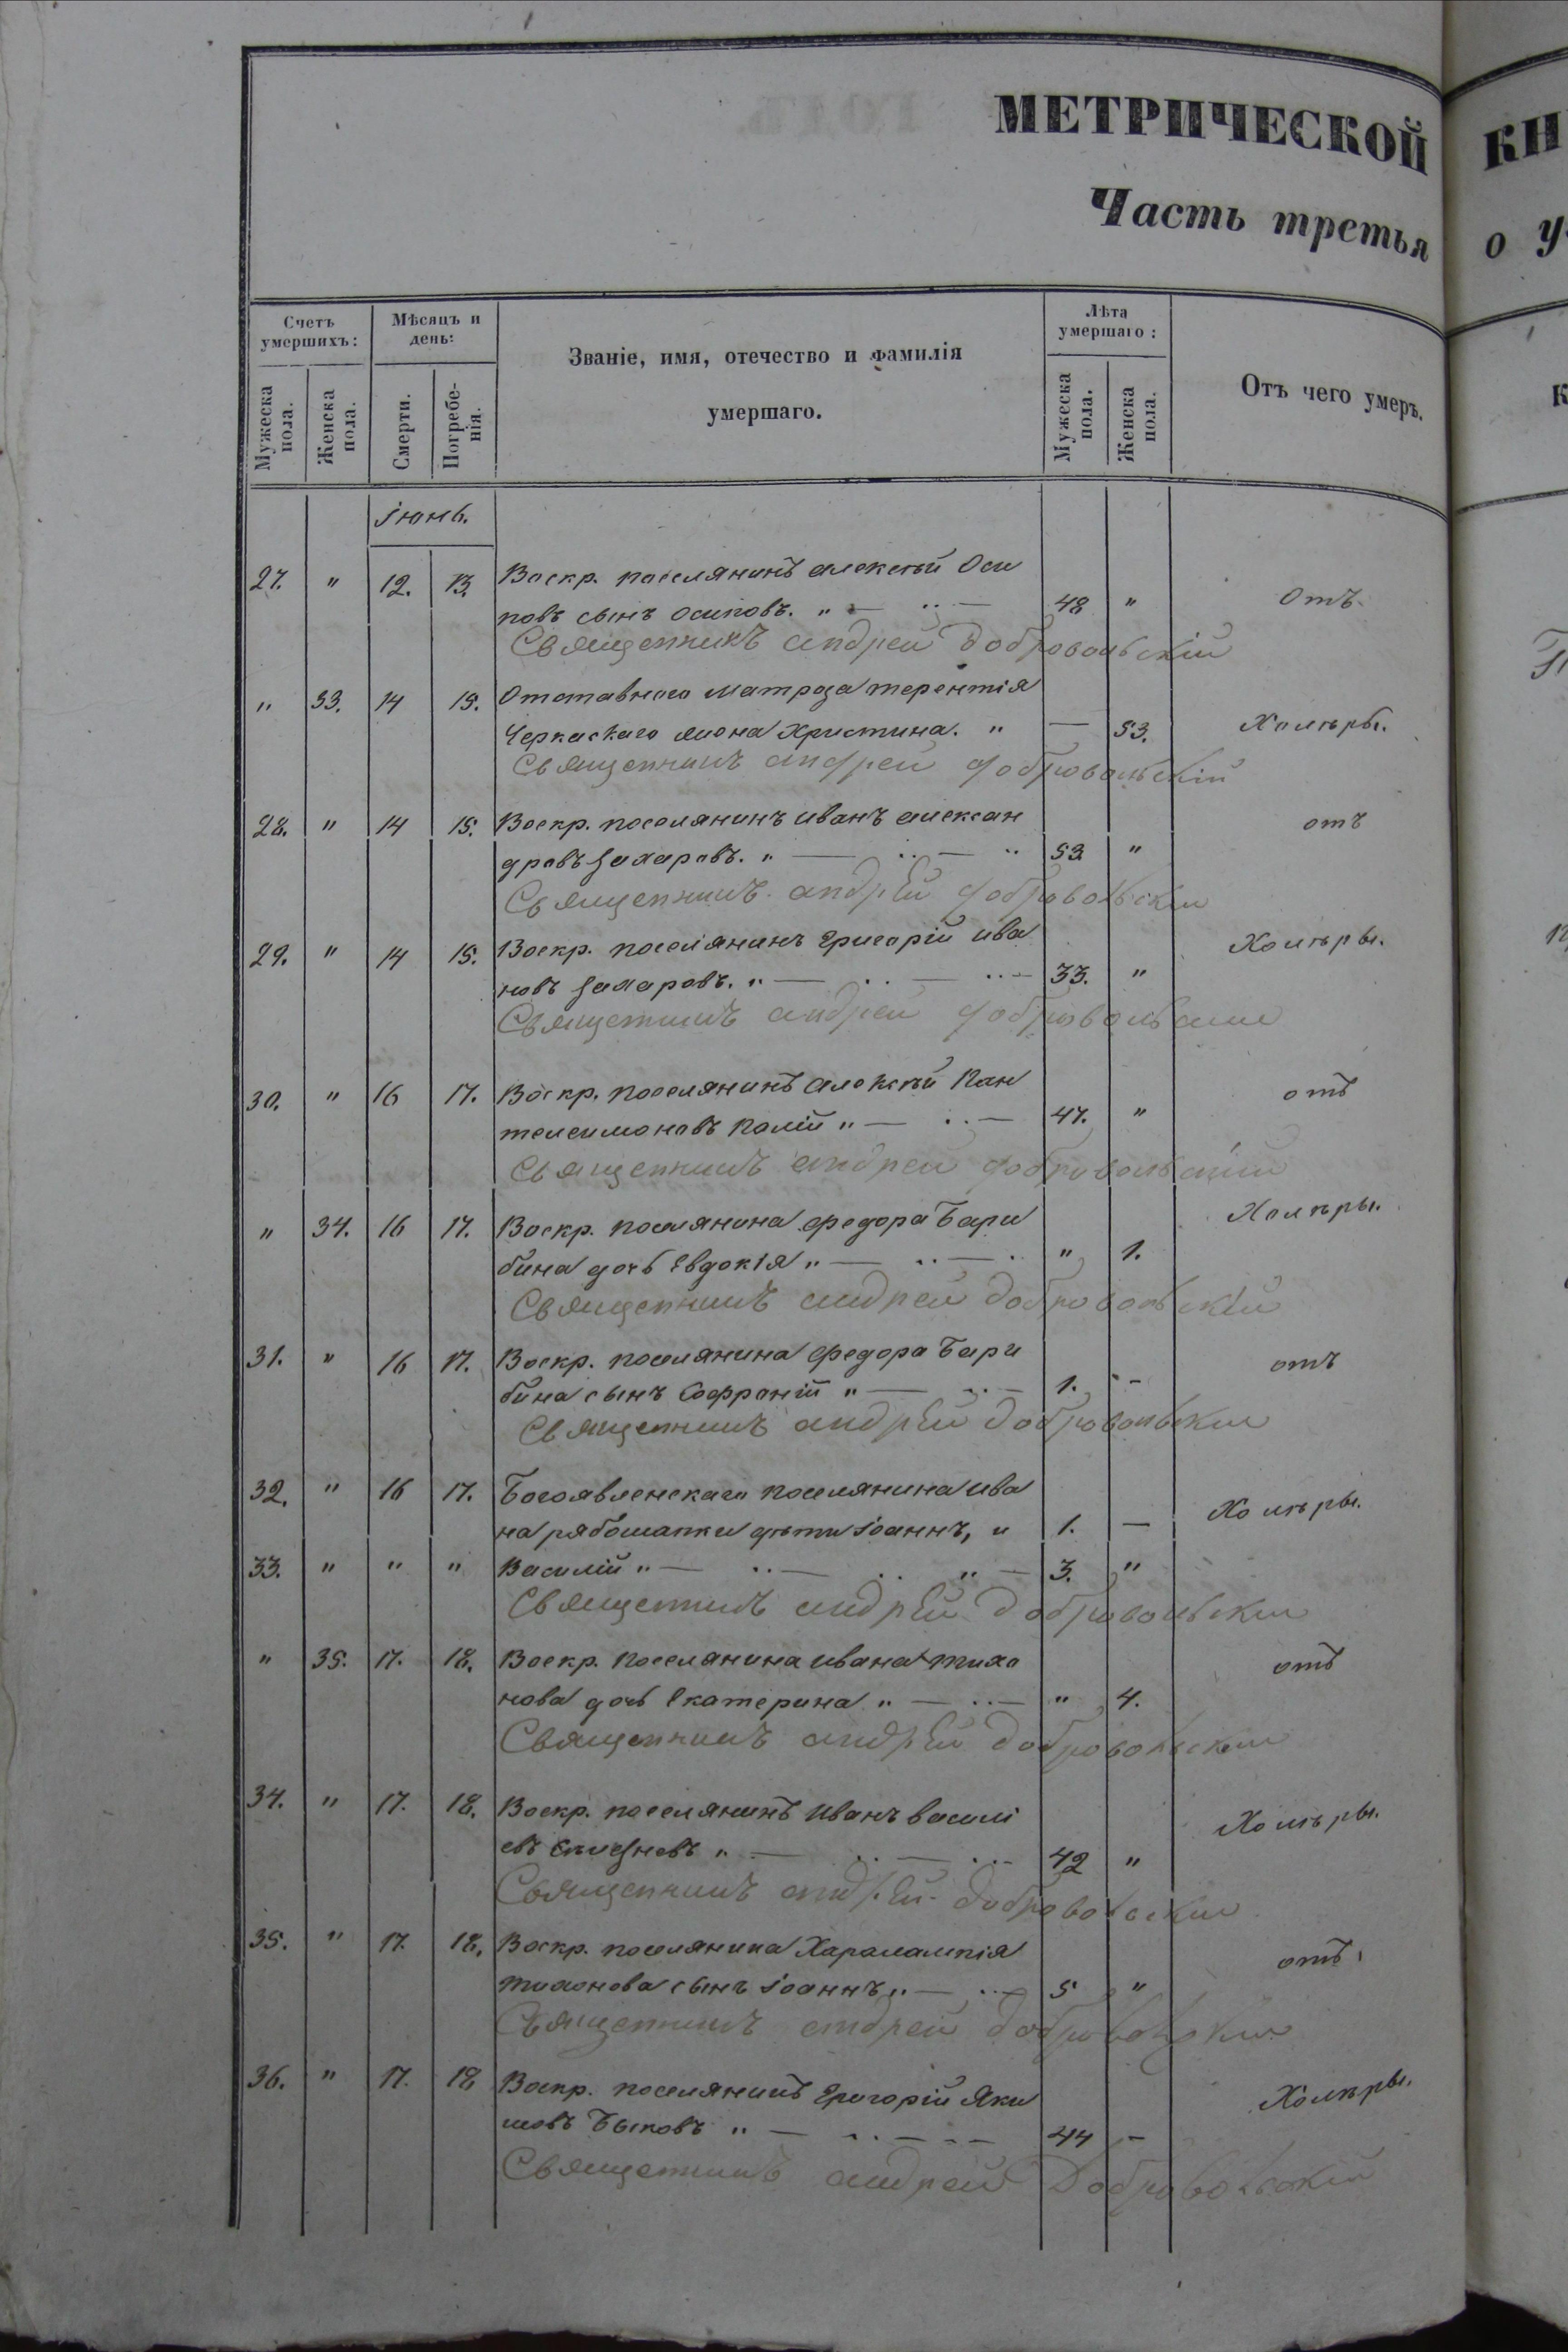 МЕТРИЧЕСКОЙ
КН
Часть третья
о у
Счетъ умершихъ:
Мѣсяцъ и день:
Званіе, имя, отечество и фамилія
умершаго.
Лѣта умершаго:
Отъ чего умеръ.
Мужеска пола.
Женска пола.
Смерти.
Погребенія.
Мужеска пола.
Женска пола.
Іюнь.
27. " 12. 13. Воскр. поселянинъ Алексѣй Оси
повъ сынъ Осиповъ. " 48 " Отъ
Священникъ Андрей Добровольскій
" 33. 14 15. Отставнаго матроза Терентія
Черкаскаго жона Христина. " — 53. Холѣры.
Священникъ Андрей Добровольскій
28. " 14 15. Воскр. поселянинъ Иванъ Алексан
дровъ Захаровъ. " 53 " отъ
Священникъ Андрей Добровольскій
29. " 14 15. Воскр. поселянинъ Григорій Ива
новъ Захаровъ. " 33. " Холѣры.
Священникъ Андрей Добровольскій
30. " 16 17. Воскр. поселянинъ Алексѣй Пан
телеимоновъ Палій " 47. " отъ
Священникъ Андрей Добровольскій
" 34. 16 17. Воскр. поселянина Федора Бари
бина дочь Евдокія " " 1. Холѣры.
Священникъ Андрей Добровольскій
31. " 16 17. Воскр. поселянина Федора Бари
бина сынъ Софроній " 1. — отъ
Священникъ Андрей Добровольскій
32. " 16 17. Богоявленскаго поселянина Ива
на Рябошапки дѣти Іоаннъ, и 1. — Холѣры.
33. " " " Василій " 3. "
Священникъ Андрей Добровольскій
" 35. 17. 18. Воскр. поселянина Ивана Тихо
нова дочь Екатерина " " 4. отъ
Священникъ Андрей Добровольскій
34. " 17. 18. Воскр. поселянинъ Иванъ Василі
евъ " 42 " Холѣры.
Священникъ Андрей Добровольскій
35. " 17. 18. Воскр. поселянина Харалампія
Тихонова сынъ Іоаннъ " 5 " отъ
Священникъ Андрей Добровольскій
36. " 17. 18 Воскр. поселянинъ Григорій Яки
мовъ Быковъ " 44 — Холѣры.
Священникъ Андрей Добровольскій